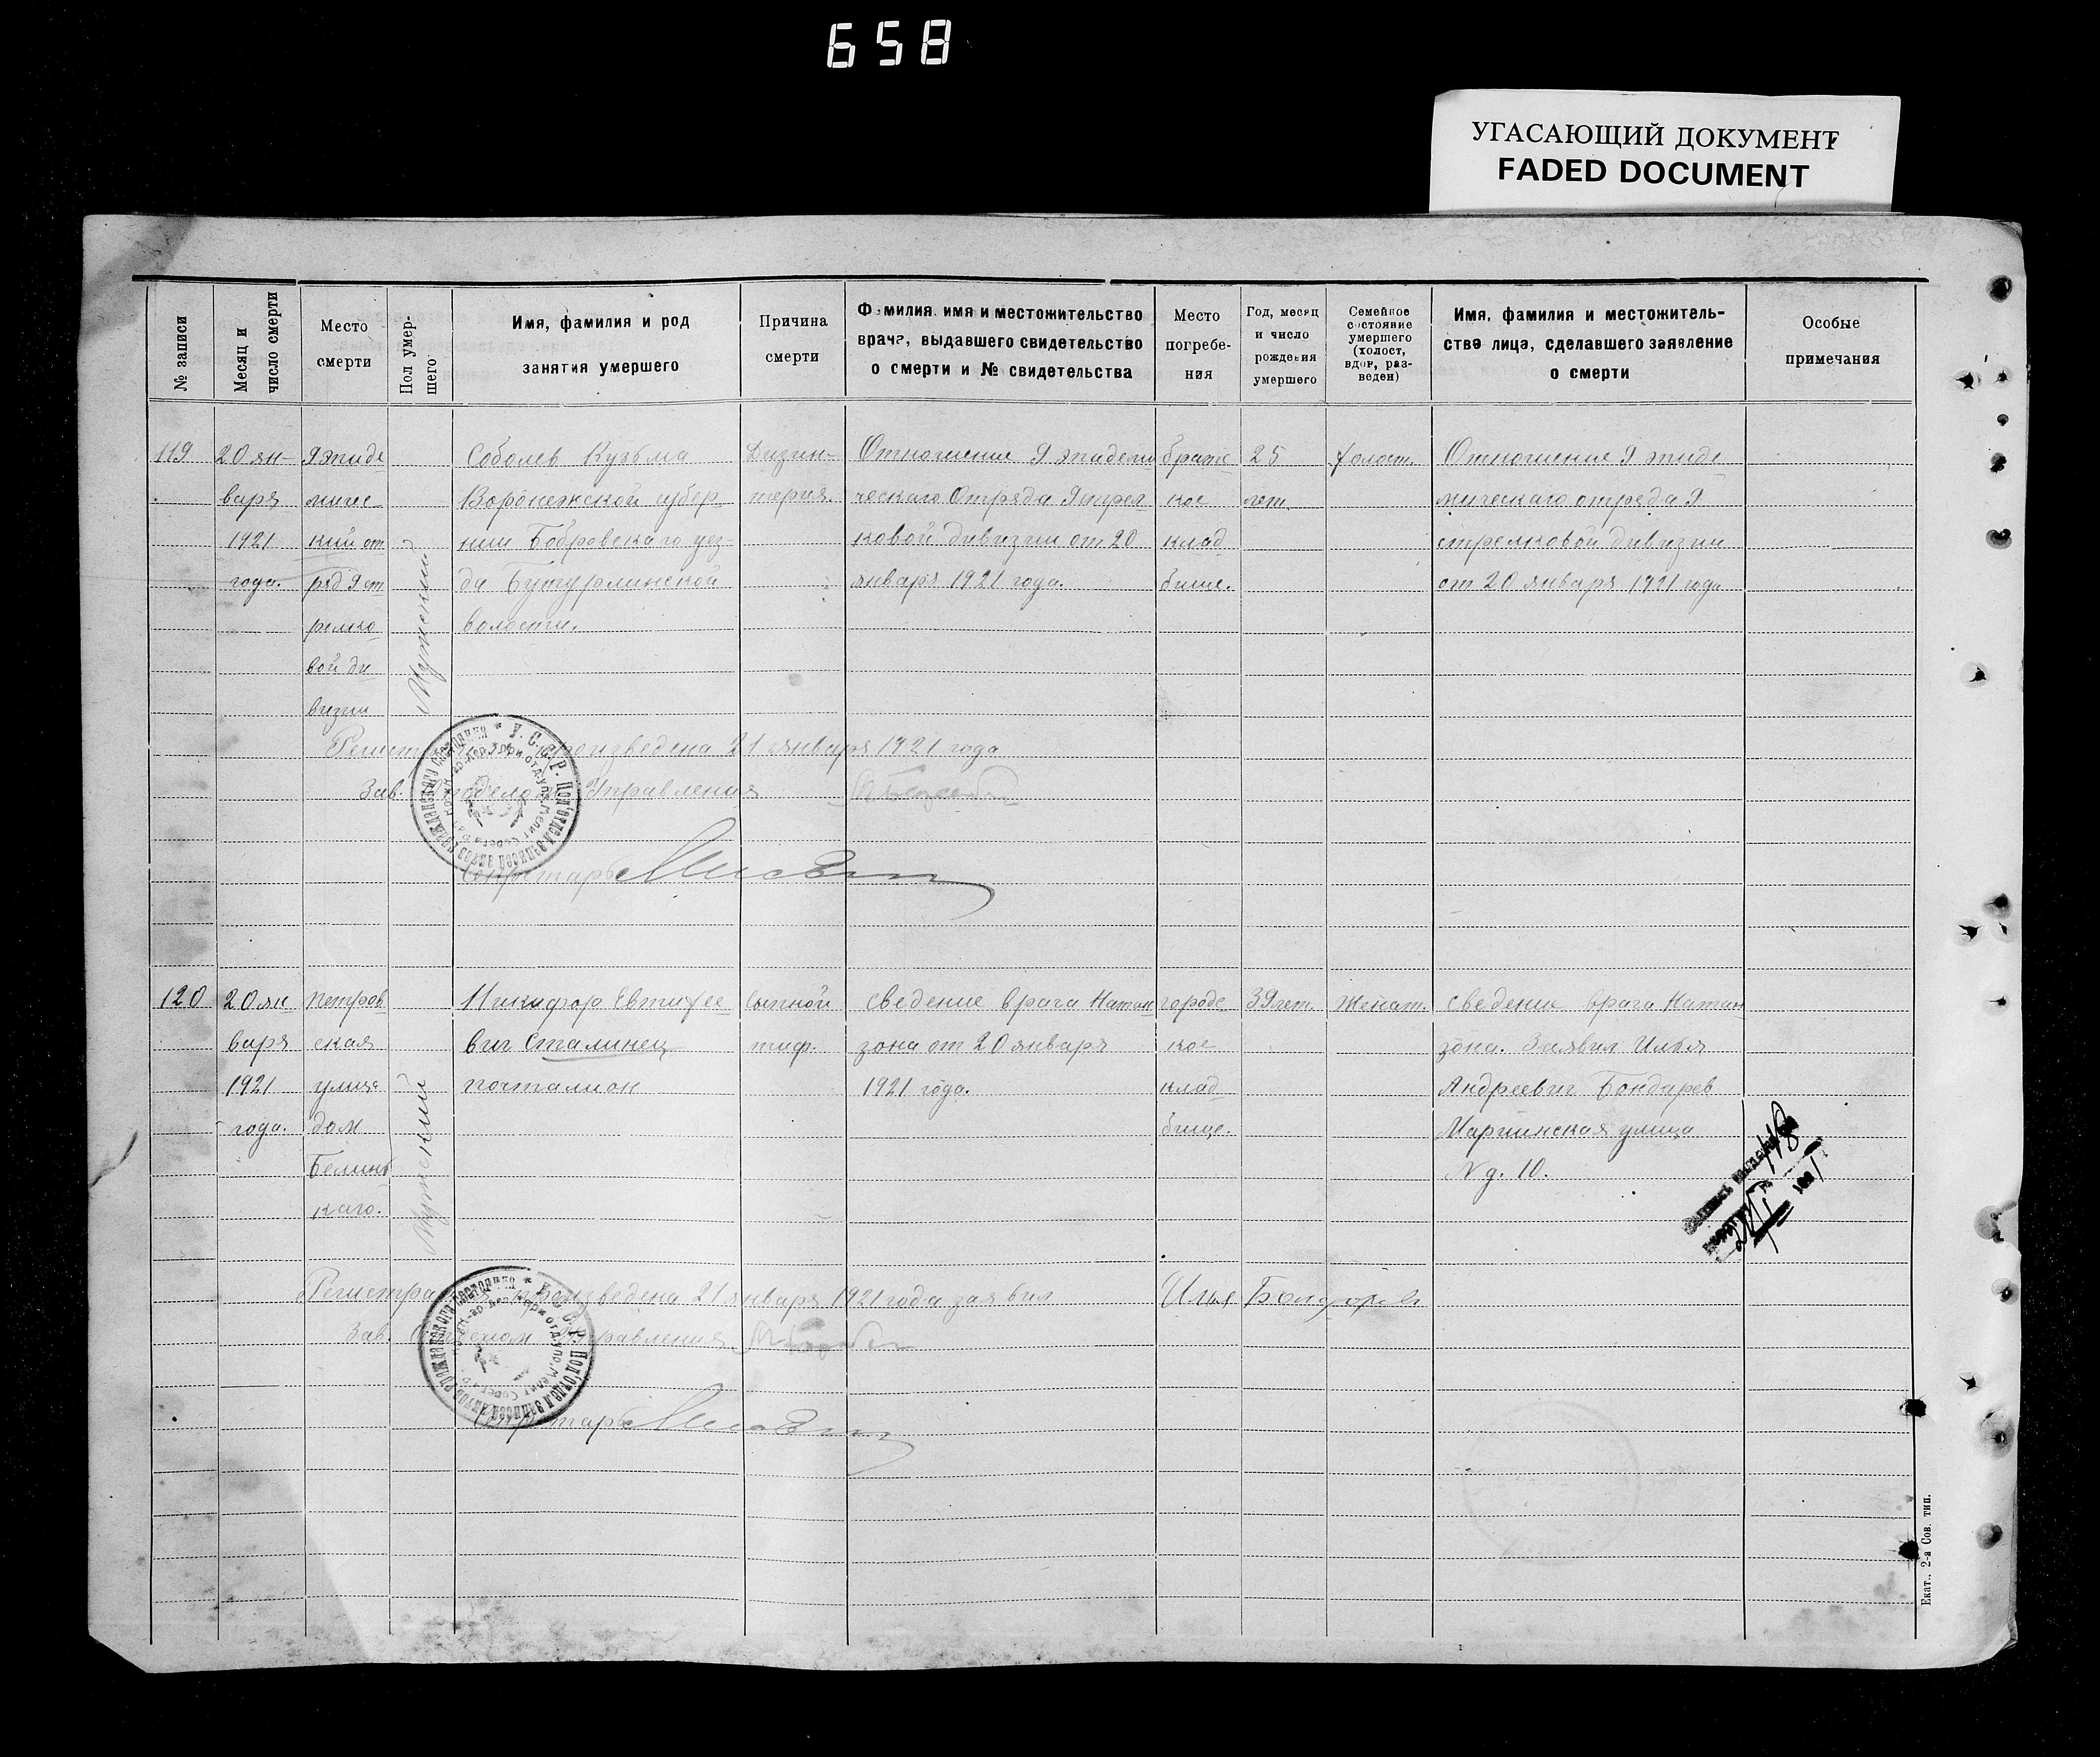 658
УГАСАЮЩИЙ ДОКУМЕНТ
FADED DOCUMENT
№ записи
Месяц и число смерти
Место смерти
Пол умер-
шего
Имя, фамилия и род
занятия умершего
Причина
смерти
Фамилия имя и местожительство
врача, выдавшего свидетельство
о смерти и № свидетельства
Место
погребе-
ния
Год, месяц
и число
рождения
умершего
Семейное
состояние
умершего
(холост,
вдов, раз-
веден)
Имя, фамилия и местожитель-
ство лица, сделавшего заявление
о смерти
Особые
примечания
119
20 ян-
варя
1921
года.
9 эпиде
мичес
кий от
ряд 9 ст
релко
вой ди
визии
Мужеский
Соболев Кузьма
Воронежской губер
нии Бобровскаго уез-
да Бутурлинской
волости.
Дизин-
терия.
Отношение 9 эпидеми
ческаго Отряда 9 стрел
ковой дивизии от 20
января 1921 года.
братс
кое
клад
бище.
25
лет
холост.
Отношение 9 эпиде
мическаго отряда 9
стрелковой дивизии
от 20 января 1921 года
произведена 21 января 1921 года
Зав. Отделом Управления
Секретарь
120
20 ян
варя
1921
года.
Петров
ская
улица
дом
Белинс
каго.
Мужеский
Никифор Евтихее
вич Сталинец
почталион
Сыпной
тиф.
Сведение врача Натан
зона от 20 января
1921 года.
городс
кое
клад
бище.
39 лет.
Женат.
Сведение врача Натан
зона. Заявил Илья
Андреевич Бондарев
Мариинская улица
№ д. 10.
Регистрация произведена 21 января 1921 года заявил Илья Бондарев
Зав. Отделом Управления
Секретарь
Екат., 2-я Сов. тип.